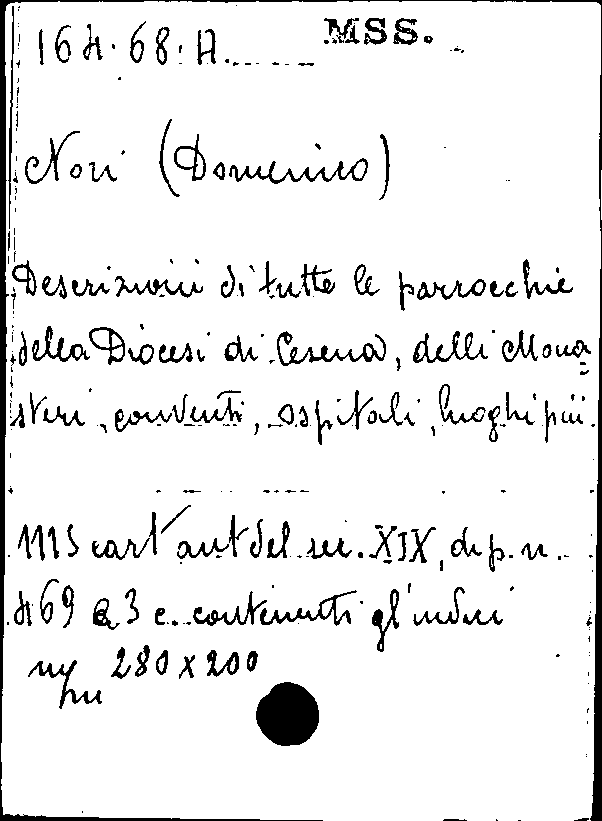 164.68.A. MSS.
Nori (Domenico)
Descrizioni di tutte le parrocchie
della Diocesi di Cesena, delli Mona
steri, conventi, ospitali, luoghi pii.
MS cart aut del sec. XIX, di p. n.
469 e 3 c. contenenti gl'indici
280 x 200